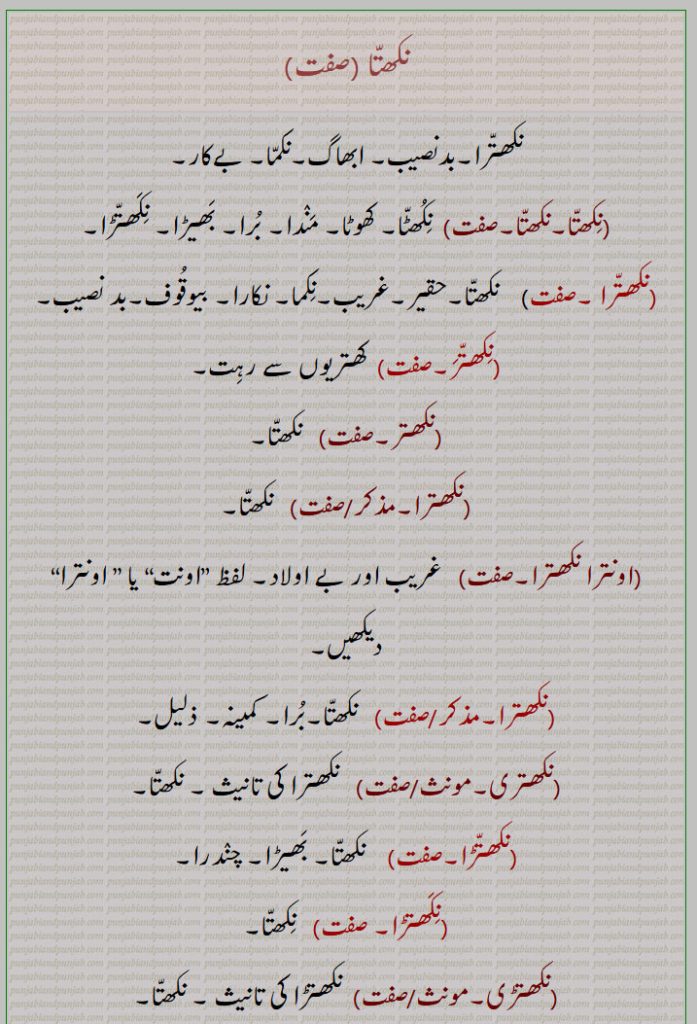 نکھتّا (صفت)
نکھتّرا۔بدنصیب۔ ابھاگ۔نکمّا۔ بےکار۔
(نِکھتّا۔نکھتّا۔صفت) نِکُھٹّا۔ کھوٹا۔ مَنْدا۔ بُرا۔ بَھیڑا۔ نِکَھتّڑا۔
(نکھتّرا ۔صفت) نکھتّا۔حقیر۔غریب۔نِکما۔ نکارا۔ بیوقُوف۔بد نصیب۔
(نِکھتّرَ۔صفت) کھتریوں سے رہِت۔
(نکھتر۔صفت) نکھتّا۔
(نکھترا۔مذکر/صفت) نکھتّا۔
(اونترا نکھترا۔صفت) غریب اور بے اولاد۔ لفظ ”اونت“ یا ” اونترا“
دیکھیں۔
(نکھترا۔مذکر/صفت) نکھتّا۔بُرا۔ کمینہ۔ ذلیل۔
(نکھتری۔مونث/صفت) نکھترا کی تانیث ۔ نکھتّا۔
(نکھتّڑا۔صفت) نکھتّا۔ بَھیڑا۔ چنْدرا۔
(نِکَھتڑا۔ صفت) نِکھتّا۔
(نکھتڑی۔مونث/صفت) نکھتڑا کی تانیث ۔ نکھتّا۔